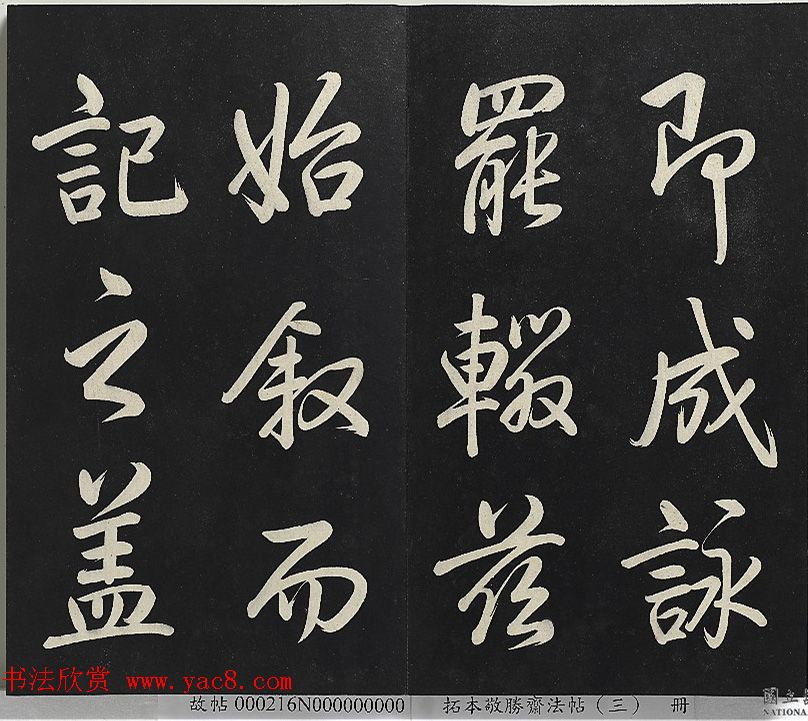 即成詠
罷輟茲
始叙而
記之盖
书法欣赏 www.yac8.com
故帖000216N000000000
拓本敬勝齋法帖（三） 册
國立
NATIONA